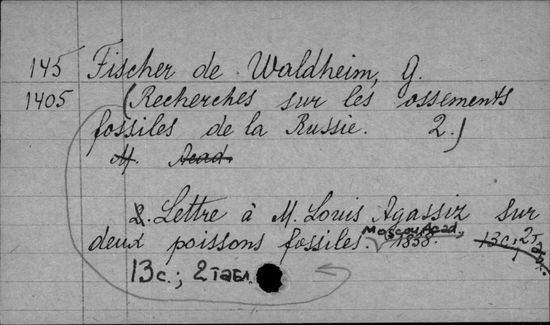 145 Fischer de Waldheim, G.
1405 (Recherches sur les ossements
fossiles de la Russie. 2.)
M. Acad.
2. Lettre à M. Louis Agassiz sur
deux poissons fossiles. Moscou Acad., 1838. 13c.; 2 табл.
13c.; 2 табл.